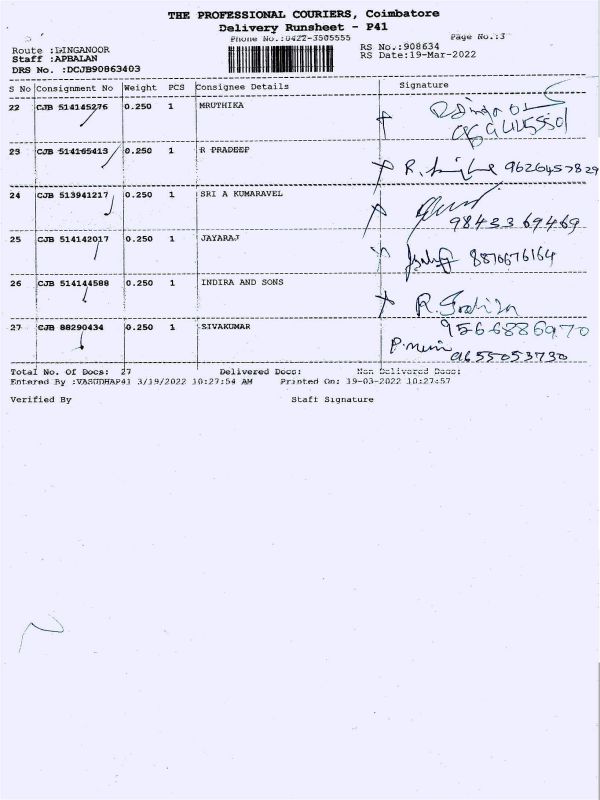 THE PROFESSIONAL COURIERS, Coimbatore
Delivery Runsheet - P41
Phone No.:0422-3505555 Page No.:3
Route :LINGANOOR RS No.:908634
Staff :APBALAN RS Date:19-Mar-2022
DRS No. :DCJB90863403
S No Consignment No Weight PCS Consignee Details Signature
22 CJB 514145276 0.250 1 MRUTHIKA
23 CJB 514165413 0.250 1 R PRADEEP 9626457829
24 CJB 513941217 0.250 1 SRI A KUMARAVEL
9843369469
25 CJB 514142017 0.250 1 JAYARAJ
8870676164
26 CJB 514144588 0.250 1 INDIRA AND SONS
R.
27 CJB 88290434 0.250 1 SIVAKUMAR 9566886970
9655053730
Total No. Of Docs: 27 Delivered Docs: Non Delivered Docs:
Entered By :VASUDHAP41 3/19/2022 10:27:54 AM Printed On: 19-03-2022 10:27:57
Verified By Staff Signature